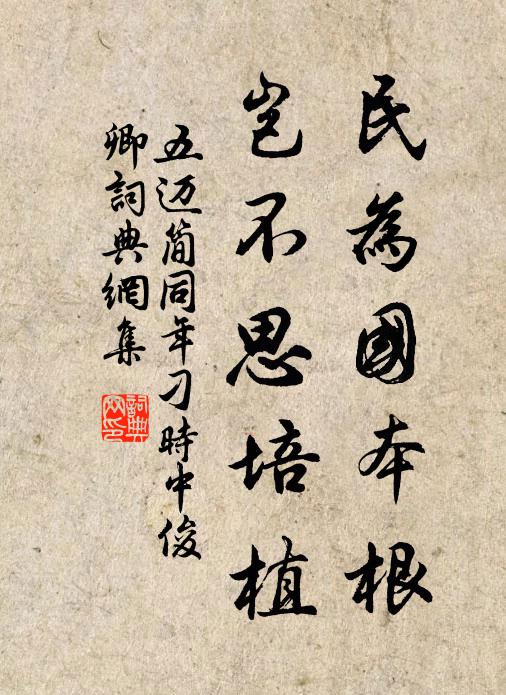 民為國本根
豈不思培植
五迈简同年刁時中俊
卿詞典網集
詞典网印